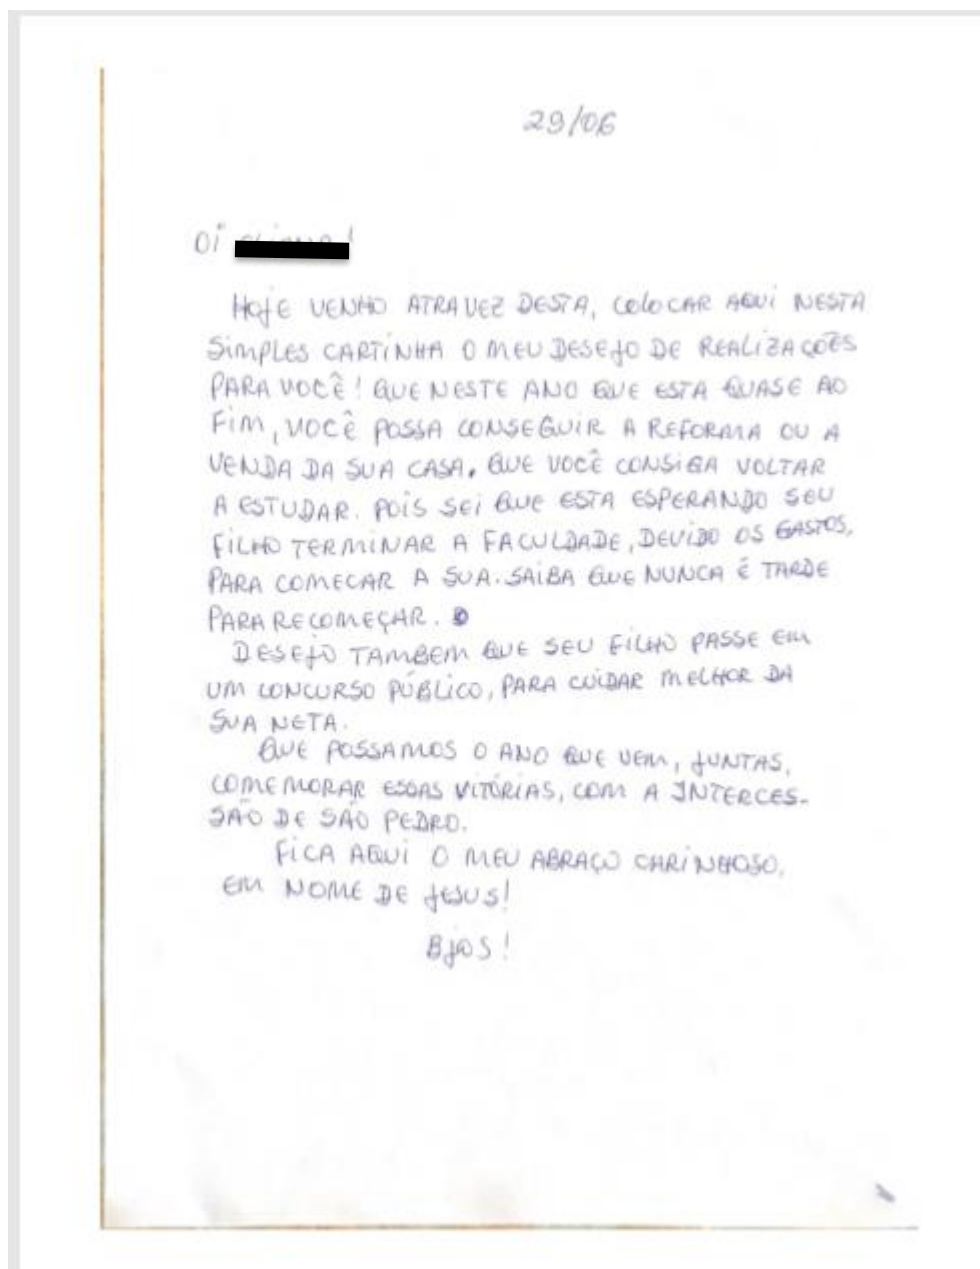 29/06
Oi !
HOJE VENHO ATRAVEZ DESTA, COLOCAR AQUI NESTA
SIMPLES CARTINHA O MEU DESEJO DE REALIZAÇÕES
PARA VOCÊ! QUE NESTE ANO QUE ESTA QUASE AO
FIM, VOCÊ POSSA CONSEGUIR A REFORMA OU A
VENDA DA SUA CASA. QUE VOCÊ CONSIGA VOLTAR
A ESTUDAR. POIS SEI QUE ESTA ESPERANDO SEU
FILHO TERMINAR A FACULDADE, DEVIDO OS GASTOS,
PARA COMEÇAR A SUA. SAIBA QUE NUNCA É TARDE
PARA RECOMEÇAR.
DESEJO TAMBEM QUE SEU FILHO PASSE EM
UM CONCURSO PÚBLICO, PARA CUIDAR MELHOR DA
SUA NETA.
QUE POSSAMOS O ANO QUE VEM, JUNTAS,
COMEMORAR ESSAS VITÓRIAS, COM A INTERCES-
SÃO DE SÃO PEDRO.
FICA AQUI O MEU ABRAÇO CARINHOSO,
EM NOME DE JESUS!
BJOS!